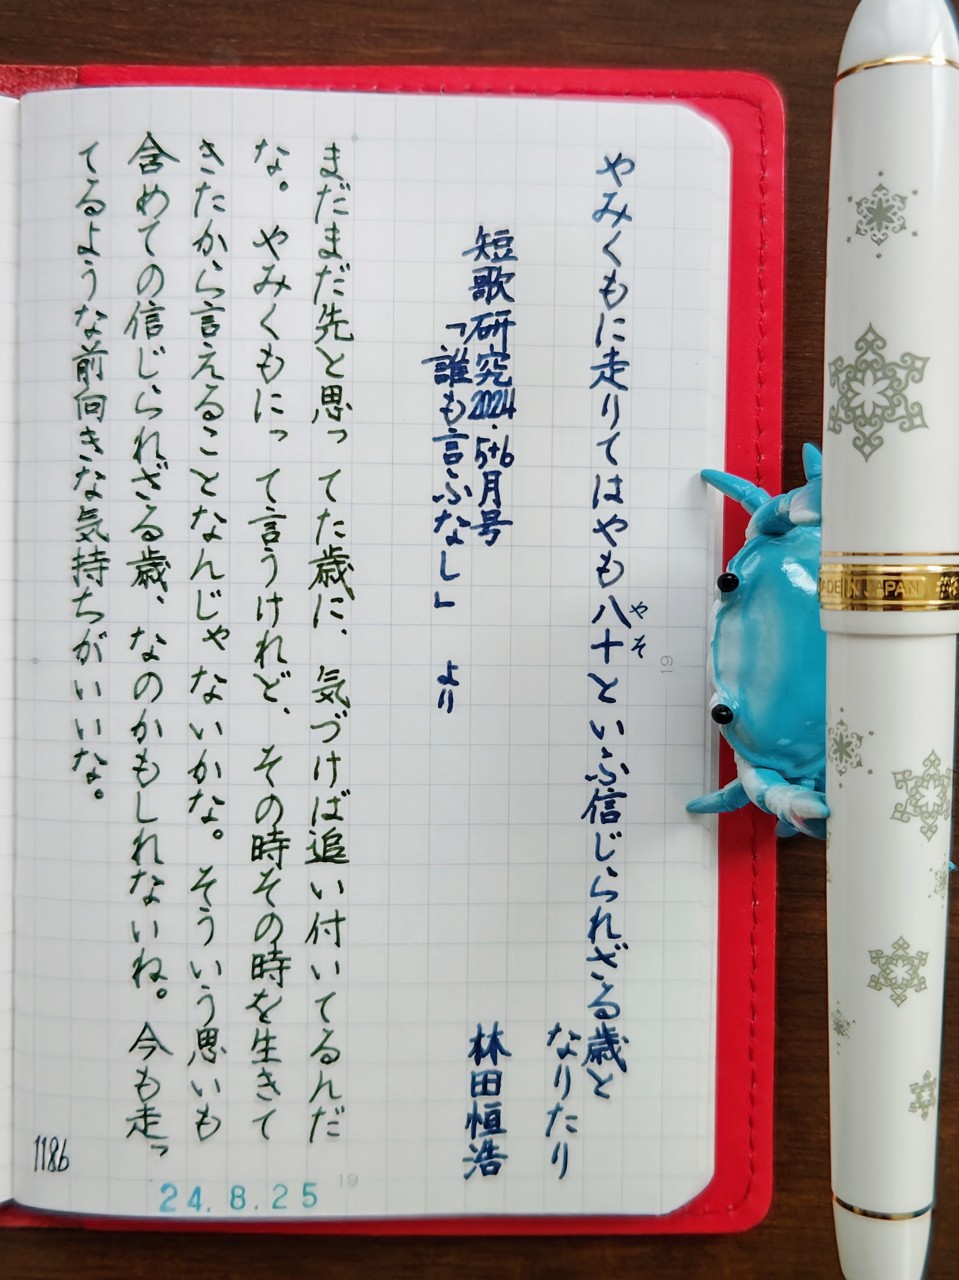 やみくもに走りてはやも八十といふ信じられざる歳と
やそ
なりたり
短歌研究2024.5+6月号
「誰も言ふなし」 より
林田恒浩
まだまだ先と思ってた歳に、気づけば追い付いてるんだ
な。やみくもにって言うけれど、その時その時を生きて
きたから言えることなんじゃないかな。そういう思いも
含めての信じられざる歳、なのかもしれないね。今も走っ
てるような前向きな気持ちがいいな。
1186
24.8.25
19
19
MADE IN JAPAN